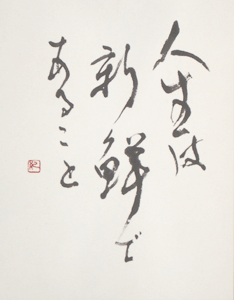 人生は
新鮮で
あること